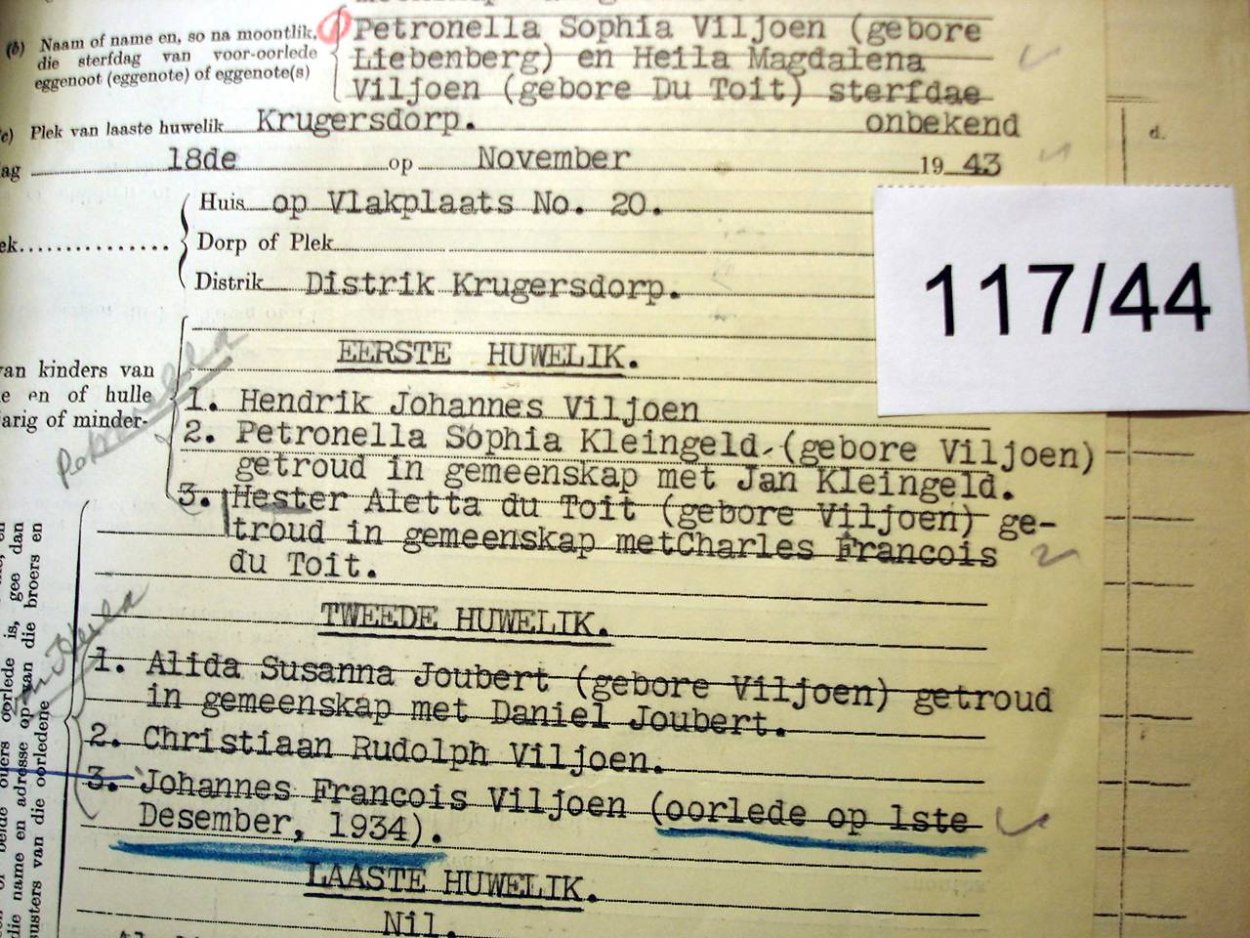 (b) Naam of name en, so na moontlik, die sterfdag van voor-oorlede eggenoot (eggenote) of eggenote(s)
Petronella Sophia Viljoen (gebore
Liebenberg) en Heila Magdalena
Viljoen (gebore Du Toit) sterfdae
onbekend
c) Plek van laaste huwelik Krugersdorp.
ag 18de op November 19 43
Huis op Vlakplaats No. 20.
ek Dorp of Plek
Distrik Distrik Krugersdorp.
117/44
d.
van kinders van
e en of hulle
jarig of minder-
EERSTE HUWELIK.
1. Hendrik Johannes Viljoen
2. Petronella Sophia Kleingeld (gebore Viljoen)
getroud in gemeenskap met Jan Kleingeld.
3. Hester Aletta du Toit (gebore Viljoen) ge-
troud in gemeenskap metCharles Francois
du Toit.
TWEEDE HUWELIK.
1. Alida Susanna Joubert (gebore Viljoen) getroud
in gemeenskap met Daniel Joubert.
2. Christiaan Rudolph Viljoen.
3. Johannes Francois Viljoen (oorlede op 1ste
Desember, 1934).
LAASTE HUWELIK.
Nil.
is, gee dan
ouers oorlede
van die broers en
die name en adresse op
susters van die oorledene